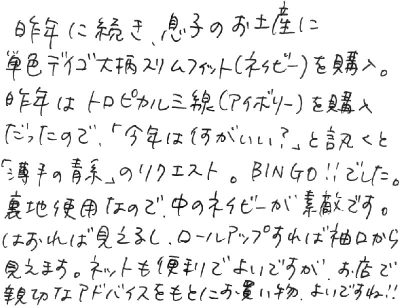 昨年に続き、息子のお土産に
単色デイゴ大柄スリムフィット(ネイビー)を購入。
昨年はトロピカル三線(アイボリー)を購入
だったので、「今年は何がいい?」と訊くと
「薄手の青系」のリクエスト。BINGO!!でした。
裏地使用なので、中のネイビーが素敵です。
はおれば見えるし、ロールアップすれば袖口から
見えます。ネットも便利でよいですが、お店で
親切なアドバイスをもとにお買い物、よいですね!!